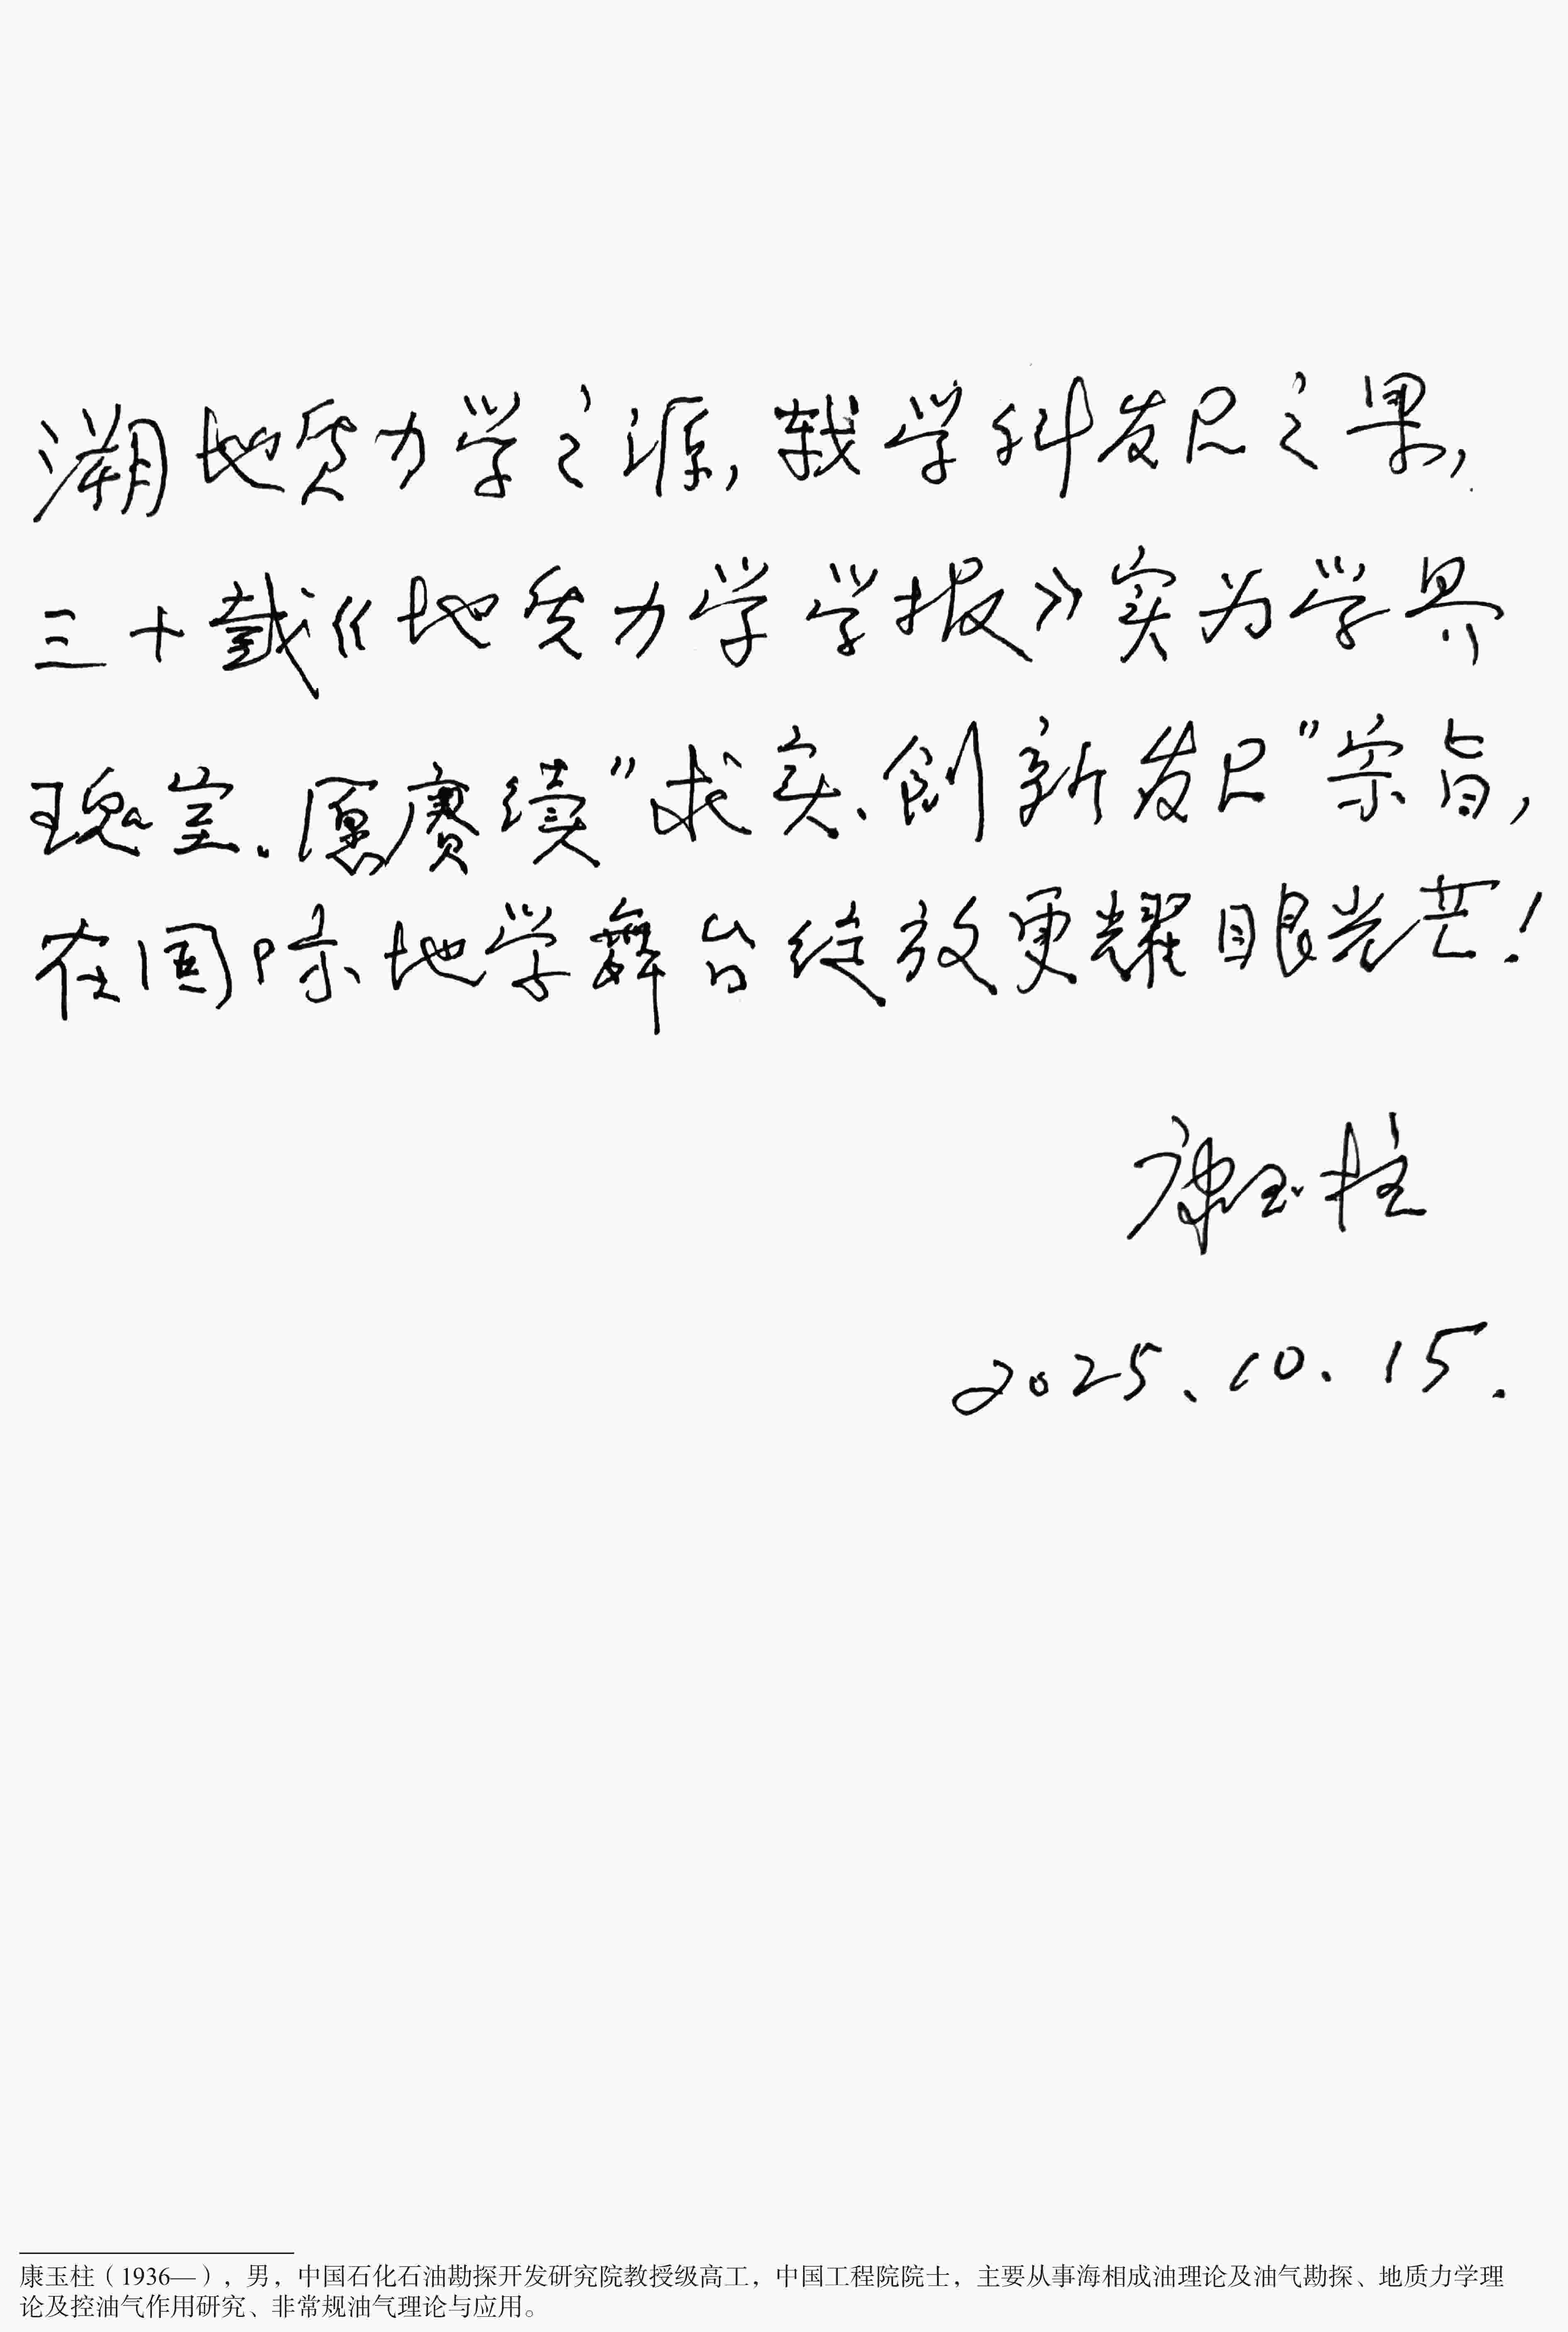 溯地质力学之源,载学科发展之果,
三十载《地质力学学报》实为学界
瑰宝.愿赓续"求实、創新发展"宗旨,
在国际地学舞台绽放更耀眼光芒!
康玉柱
2025.10.15.
康玉柱（1936—），男，中国石化石油勘探开发研究院教授级高工，中国工程院院士，主要从事海相成油理论及油气勘探、地质力学理
论及控油气作用研究、非常规油气理论与应用。